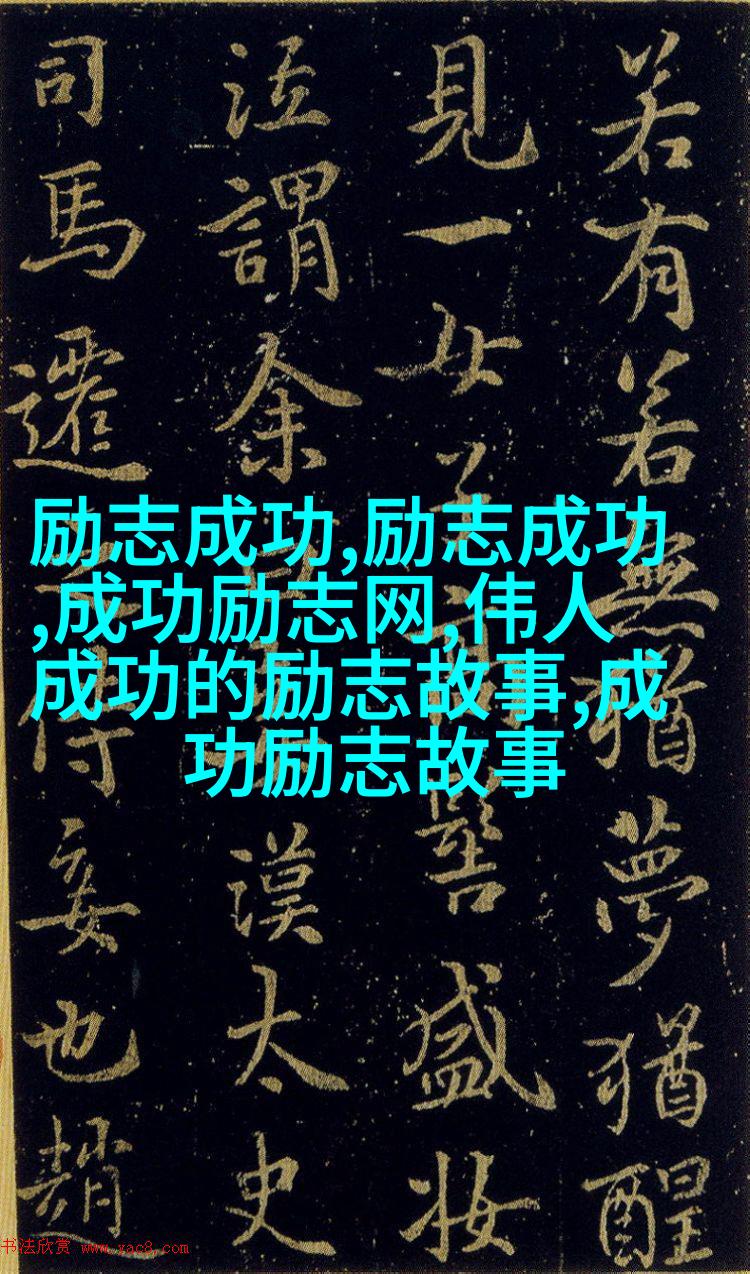 若有若無猶夢猶醒
見一女子髻盛妝
泣謂余漢太史
司馬遷侍妾也趙
励志成功,励志成功
,成功励志网,伟人
成功的励志故事,成
功励志故事
书法欣赏 www.yac8.com